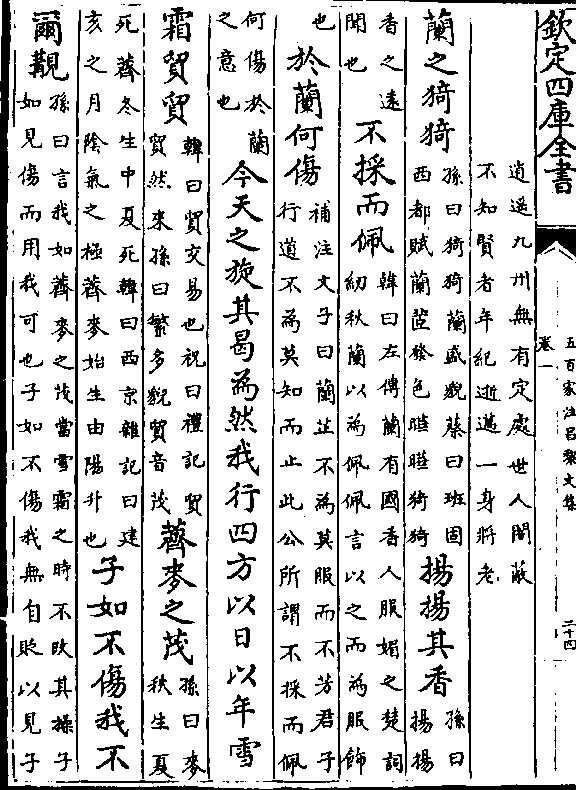 欽定四庫全書
五百家注昌黎文集
卷一
二十四
逍遥九州無有定處世人闇蔽
不知賢者年紀逝邁一身將老
蘭之猗猗
孫曰猗猗蘭盛貌蔡曰班固
西都賦蘭茝發色曄曄猗猗
揚揚其香
孫曰
揚揚
香之逺
聞也
不採而佩
韓曰左傳蘭有國香人服媚之楚詞
紉秋蘭以為佩佩言以之而為服飾
也
於蘭何傷
補注文子曰蘭芷不為莫服而不芳君子
行道不為莫知而止此公所謂不採而佩
何傷於蘭
之意也
今天之旋其曷為然我行四方以日以年雪
霜貿貿
韓曰貿交易也祝曰禮記貿
貿然來孫曰繁多貌貿音茂
薺麥之茂
孫曰麥
秋生夏
死薺冬生中夏死韓曰西京雜記曰建
亥之月陰氣之極薺麥始生由陽升也
子如不傷我不
爾覯
孫曰言我如薺麥之茂當雪霜之時不改其操子
如見傷而用我可也子如不傷我無自貶以見子